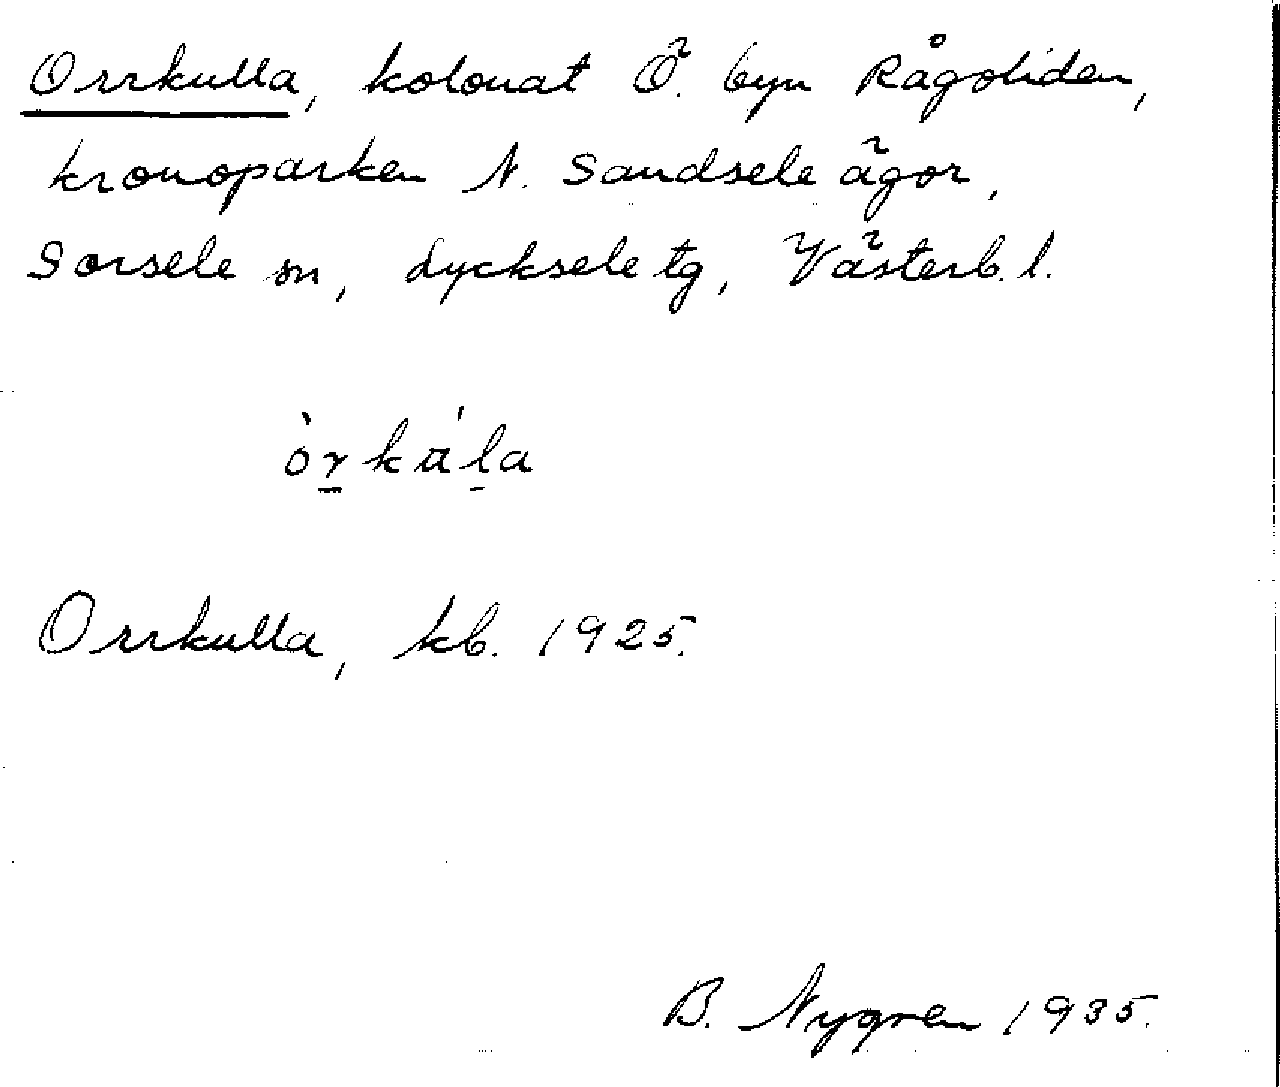 Orrkulla, kolonat Ö. byn Rågoliden,
kronoparken N. Sandsele ägor,
Sorsele sn, Lycksele tg, Västerb. l.
òr̲kál̲a
Orrkulla, kb. 1925.
B. Nygren 1935.